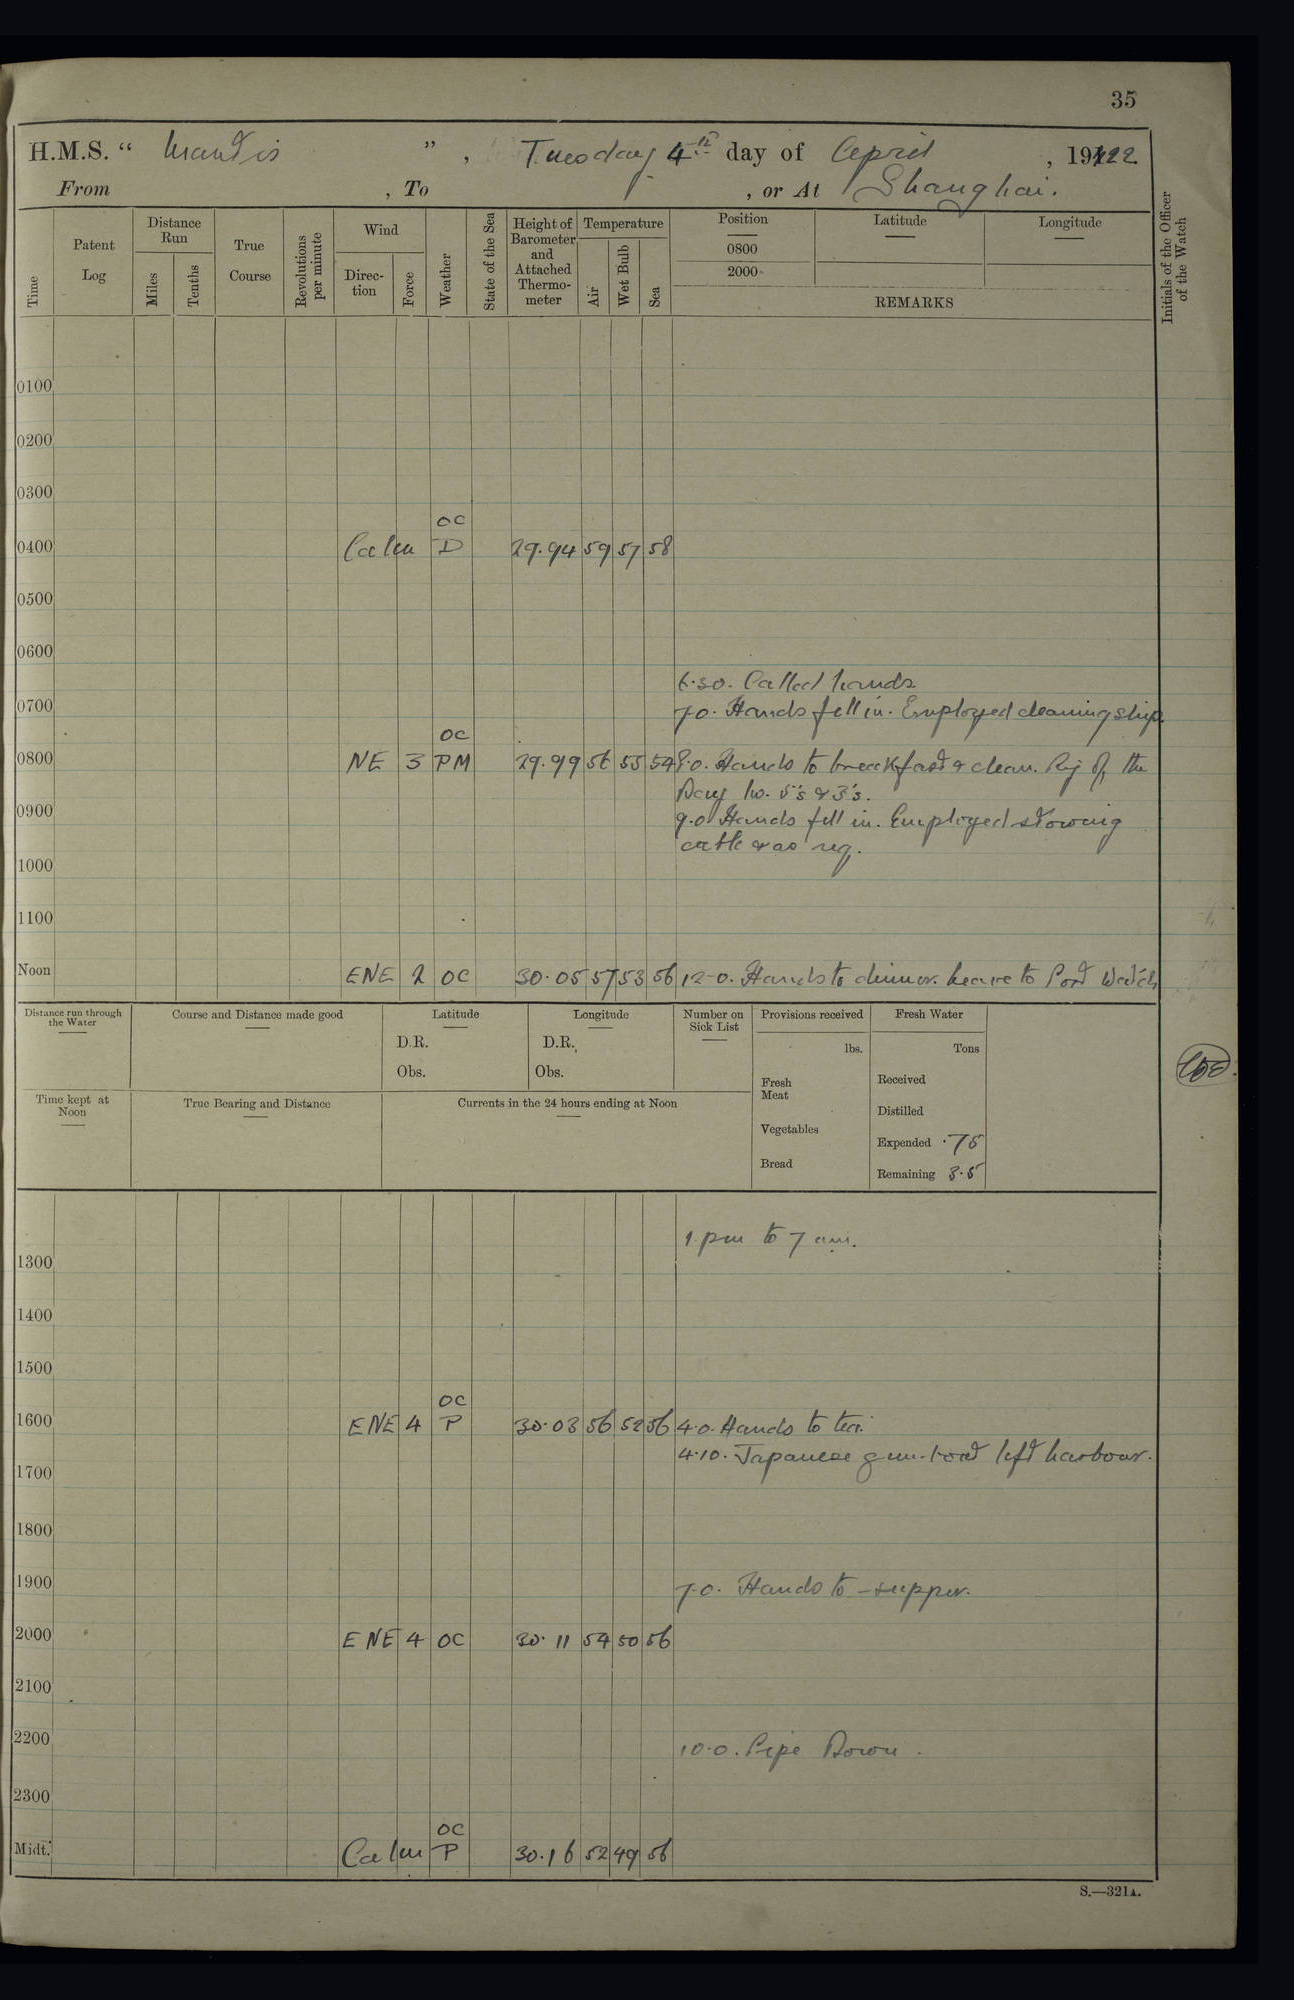 35
H.M.S. “ Mantis ” , Tuesday 4th day of April , 1922
From , To , or At Shanghai.
Time
Patent Log
Distance Run
Miles
Tenths
True Course
Revolutions per minute
Wind
Direc-tion
Force
Weather
State of the Sea
Height of Barometer and Attached Thermo-meter
Temperature
Air
Wet Bulb
Sea
Position
0800
2000
Latitude
Longitude
REMARKS
Initials of the Officer of the Watch
0100
0200
0300
OC
0400 Calm D 29.94 59 57 58
0500
0600
6.30. Called hands
0700 7.0. Hands fell in. Employed cleaning ship.
OC
0800 NE 3 PM 29.99 56 55 54 8.0. Hands to breakfast & clean. Rig of the
Day No. 5's & 3's.
0900 9.0 Hands fell in. Employed stowing
cable & as req.
1000
1100
Noon ENE 2 OC 30.05 57 53 56 12-0. Hands to dinner. Leave to Port Watch
Distance run through the Water
Course and Distance made good
Latitude
D.R.
Obs.
Longitude
D.R.
Obs.
Number on Sick List
Provisions received
lbs.
Fresh Meat
Vegetables
Bread
Fresh Water
Tons
Received
Distilled
Expended .75
Remaining 3.5
Time kept at Noon
True Bearing and Distance
Currents in the 24 hours ending at Noon
1 pm to 7 am.
1300
1400
1500
OC
1600 ENE 4 P 30.03 56 52 56 4.0. Hands to tea.
4.10. Japanese gun-boat left harbour.
1700
1800
1900 7.0. Hands to supper.
2000 ENE 4 OC 30.11 54 50 56
2100
2200 10.0. Pipe Down.
2300
OC
Midt. Calm P 30.16 52 49 56
S.—321A.